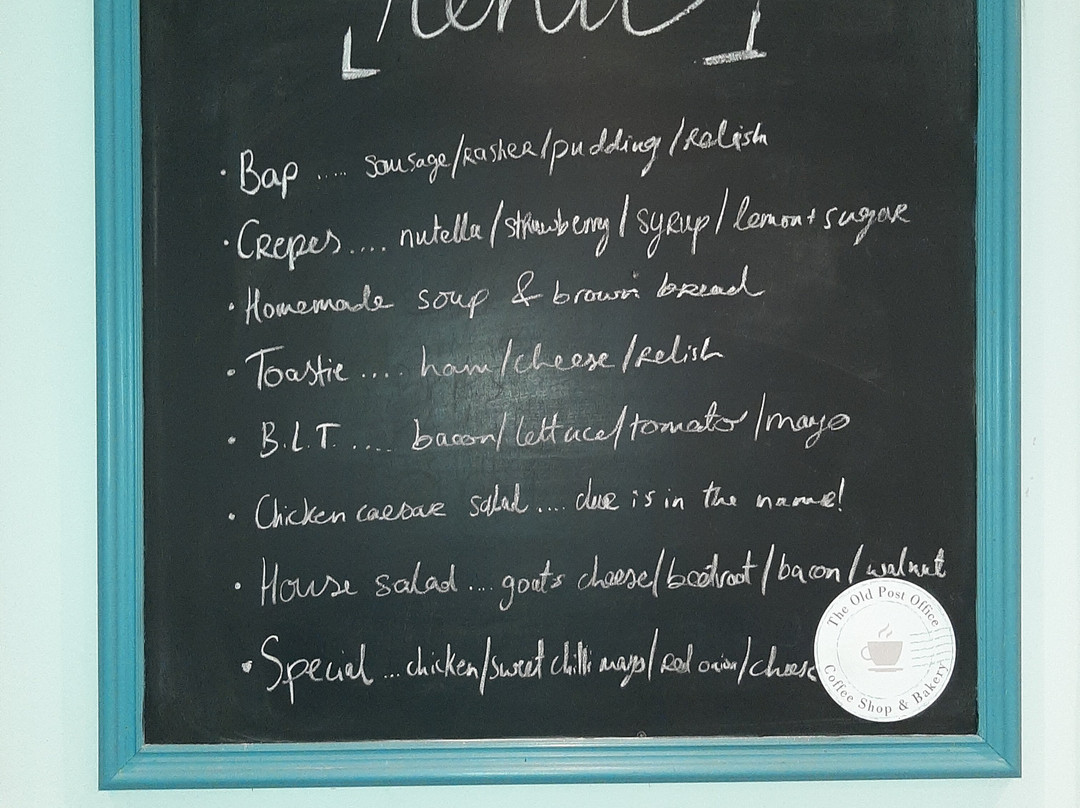 Menu
· Bap .... sausage/rasher/pudding/relish
· Crepes .... nutella/strawberry/syrup/lemon + sugar
· Homemade soup & brown bread
· Toastie .... ham/cheese/relish
· B.L.T. .... bacon/lettuce/tomato/mayo
· Chicken caesar salad .... clue is in the name!
· House salad .... goats cheese/beetroot/bacon/walnut
· Special ... chicken/sweet chilli mayo/red onion/cheese
The Old Post Office
Coffee Shop & Bakery